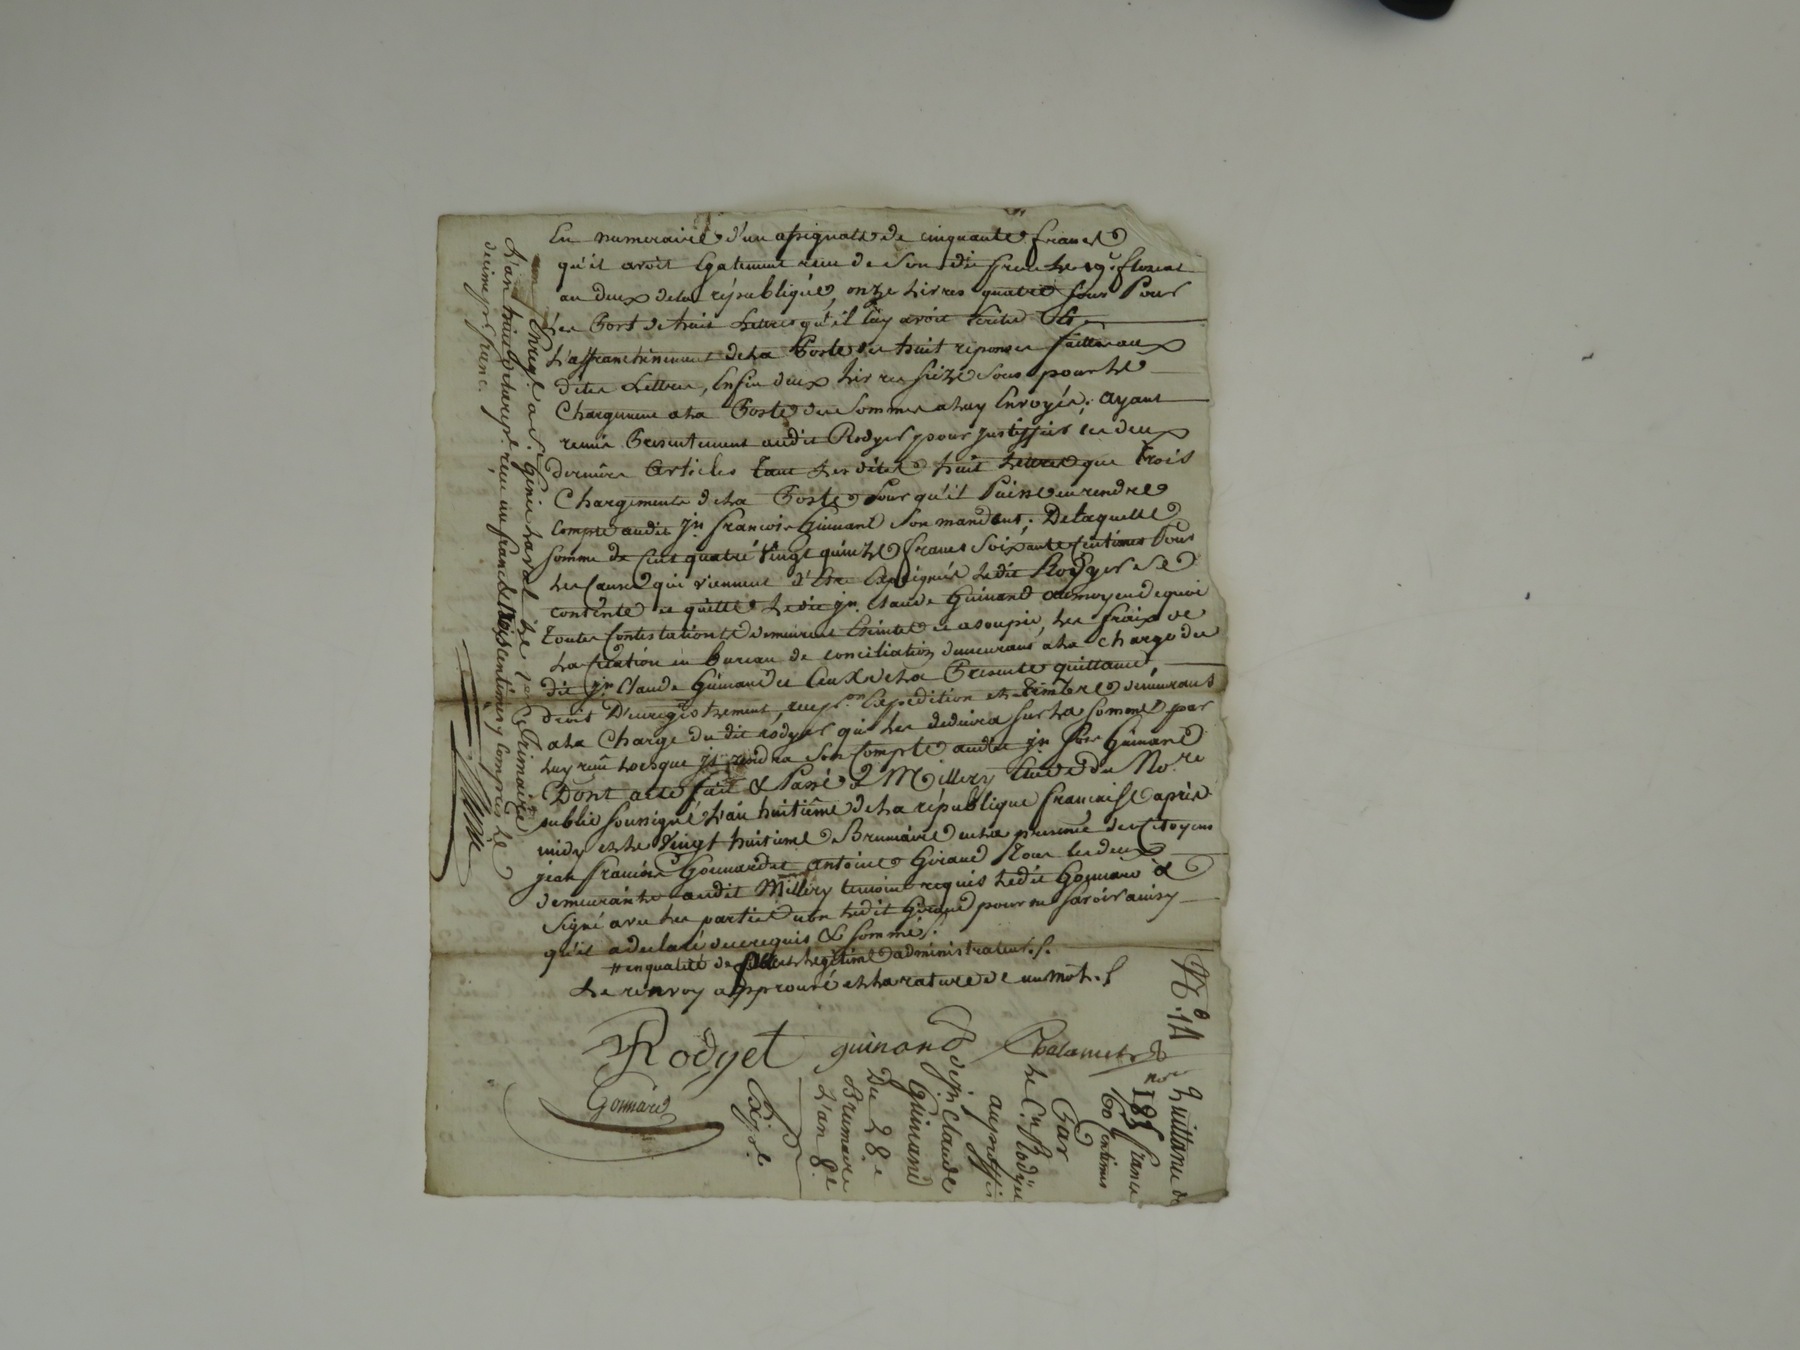 En numeraire d'un assignats de cinquante francs
qu'il avoit Egalement reçu de son dit frere le 19e. floreal
an deux de la république, onze livres quatre sous Pour
Les Port de huit Lettres qu'il luy avoit Ecrites Et
L'affranchissement de La Poste des huit reponses faittes aux
dites Lettres, Enfin deux livres seize sous pour le
Chargement a La Poste des sommes a luy Envoyés; ayant
remis Presentement audit Rodyet pour justiffier les deux
derniers Articles tant Les dites huit Lettres que trois
Chargements de La Poste Pour qu'il Puisse en rendre
Compte audit jn. francois Guinand son mandant; De laquelle
somme de Cent quatre Vingt quinze francs soixante Centimes Pour
Les Causes qui viennent d'Etre Expliqués Ledit Rodyet se
contente et quitte Ledit jn. Claude Guinand au moyen de quoi
toutes Contestations demeurent Eteintes et asoupies, Les fraix de
La Citation en bureau de conciliation demeurans a La charge du
dit jn Claude Guinand et Ceux de La Presente quittance,
droit D'enregistrement, Expedition et timbre demeurans
a La Charge du dit Rodyet qui Les deduira sur La somme par
luy reçue Lorsque il rendra son Compte audit jn fois Guinand
Dont acte fait & Passé a Millery Etude du No.re
public soussigné L'an huitième de La république francaise après
midy et Le Vingt huitieme Brumaire en La presence des Citoyens
jean francois Gonnard et antoine Giraud tous Les deux
demeurants audit Millery temoins requis Ledit Gonnard a
signé avec Les parties non Ledit Giraud pour ne savoir ainsy
qu'il a declaré de ce requis & sommé.
# en qualité de Legitime administrateur.
Le renvoy approuvé et La rature de un mot.
Rodyet guinand Chalamet
Gonnard
Enregé. a St. Genis Laval Le 1er frimaire
L'an huit de La répe. reçu un franc dix centimes y compris Le
decime pr. franc.
No. 14
Quittance de
195 francs
60 Centimes
Par
Le Cn. Rodyet
au proffit
de jn Claude
Guinand
Du 28.e
Brumaire
L'an 8.e